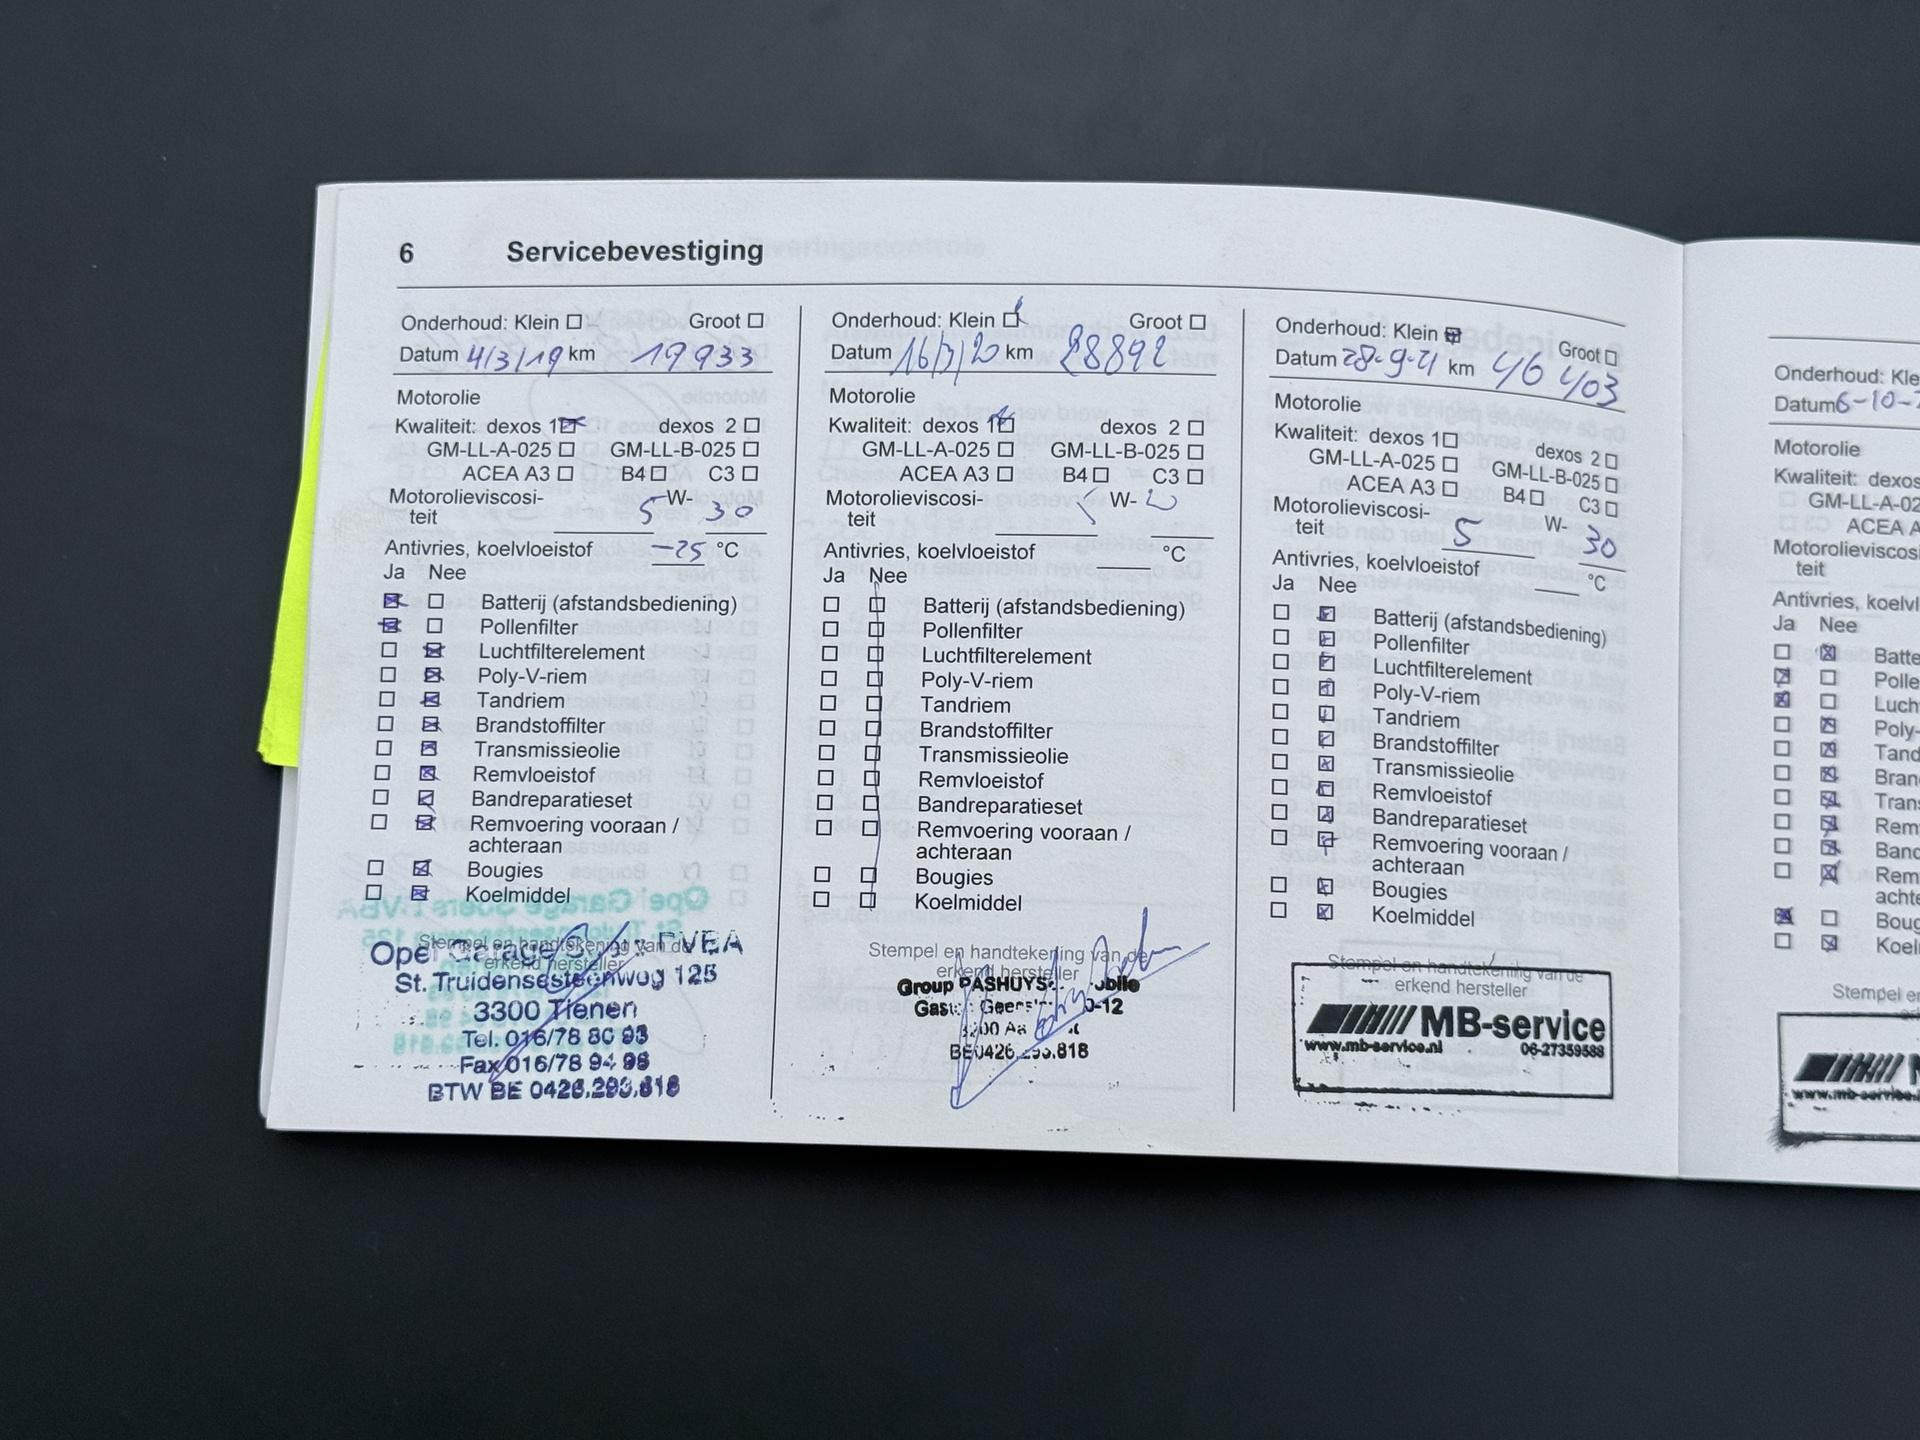 6 Servicebevestiging
Onderhoud: Klein ☐ Groot ☐
Datum 4/3/19 km 19933
Motorolie
Kwaliteit: dexos 1 ☒ dexos 2 ☐
GM-LL-A-025 ☐ GM-LL-B-025 ☐
ACEA A3 ☐ B4 ☐ C3 ☐
Motorolieviscosi-
teit 5 W- 30
Antivries, koelvloeistof -25 °C
Ja Nee
☒ ☐ Batterij (afstandsbediening)
☒ ☐ Pollenfilter
☐ ☒ Luchtfilterelement
☐ ☒ Poly-V-riem
☐ ☒ Tandriem
☐ ☒ Brandstoffilter
☐ ☒ Transmissieolie
☐ ☒ Remvloeistof
☐ ☒ Bandreparatieset
☐ ☒ Remvoering vooraan /
achteraan
☐ ☒ Bougies
☐ ☒ Koelmiddel
Stempel en handtekening van de
erkend hersteller
Opel Garage BVBA
St. Truidensesteenweg 125
3300 Tienen
Tel. 016/78 80 93
Fax 016/78 94 98
BTW BE 0426.293.818
Onderhoud: Klein ☒ Groot ☐
Datum 16/3/20 km 28892
Motorolie
Kwaliteit: dexos 1 ☒ dexos 2 ☐
GM-LL-A-025 ☐ GM-LL-B-025 ☐
ACEA A3 ☐ B4 ☐ C3 ☐
Motorolieviscosi-
teit 5 W-
Antivries, koelvloeistof °C
Ja Nee
☐ ☐ Batterij (afstandsbediening)
☐ ☐ Pollenfilter
☐ ☐ Luchtfilterelement
☐ ☐ Poly-V-riem
☐ ☐ Tandriem
☐ ☐ Brandstoffilter
☐ ☐ Transmissieolie
☐ ☐ Remvloeistof
☐ ☐ Bandreparatieset
☐ ☐ Remvoering vooraan /
achteraan
☐ ☐ Bougies
☐ ☐ Koelmiddel
Stempel en handtekening van de
erkend hersteller
Group PASHUYS
BE0426.293.818
Onderhoud: Klein ☒ Groot ☐
Datum 28-9-21 km 46 403
Motorolie
Kwaliteit: dexos 1 ☐ dexos 2 ☐
GM-LL-A-025 ☐ GM-LL-B-025 ☐
ACEA A3 ☐ B4 ☐ C3 ☐
Motorolieviscosi-
teit 5 W- 30
Antivries, koelvloeistof °C
Ja Nee
☐ ☒ Batterij (afstandsbediening)
☐ ☒ Pollenfilter
☐ ☒ Luchtfilterelement
☐ ☒ Poly-V-riem
☐ ☒ Tandriem
☐ ☒ Brandstoffilter
☐ ☒ Transmissieolie
☐ ☒ Remvloeistof
☐ ☒ Bandreparatieset
☐ ☒ Remvoering vooraan /
achteraan
☐ ☒ Bougies
☐ ☒ Koelmiddel
Stempel en handtekening van de
erkend hersteller
MB-service
www.mb-service.nl 06-27359588
Onderhoud: Kle
Datum 6-10-
Motorolie
Kwaliteit: dexos
GM-LL-A-02
ACEA A
Motorolieviscosi
teit
Antivries, koelvl
Ja Nee
☐ ☒ Batte
☒ ☐ Polle
☒ ☐ Luch
☐ ☒ Poly-
☐ ☒ Tand
☐ ☒ Bran
☐ ☒ Trans
☐ ☒ Rem
☐ ☒ Band
☐ ☒ Rem
achte
☒ ☐ Boug
☐ ☒ Koel
Stempel e
www.mb-service.